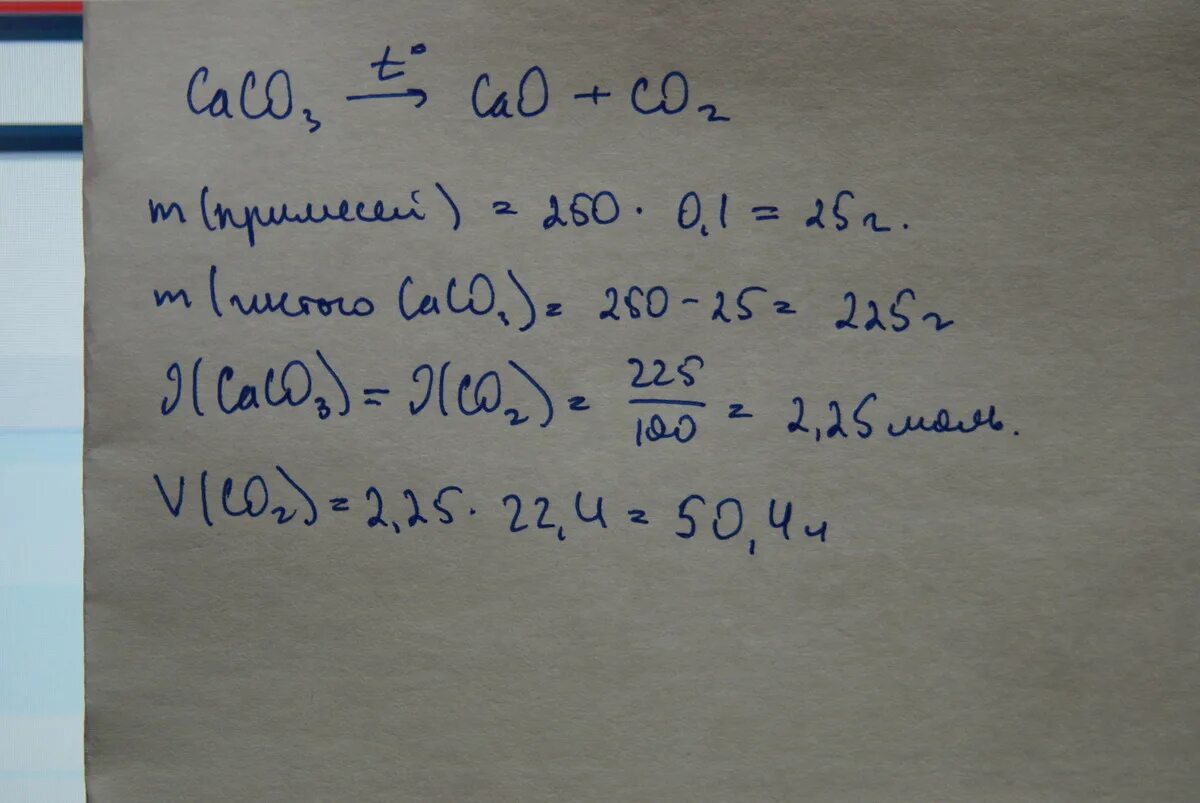 CaCO₃ t° → CaO + CO₂
m(примесей) = 250 · 0,1 = 25 г.
m(чистого CaCO₃) = 250 - 25 = 225 г
ν(CaCO₃) = ν(CO₂) = 225/100 = 2,25 моль.
V(CO₂) = 2,25 · 22,4 = 50,4 л